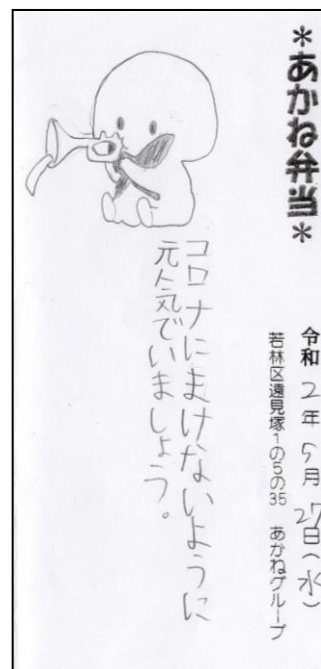 ＊あかね弁当＊
令和2年5月27日（水）
若林区遠見塚1の5の35　あかねグループ
コロナにまけないように
元気でいましょう。